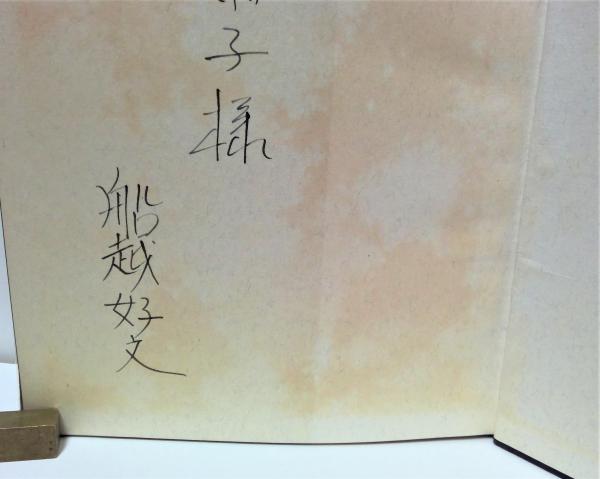 子様
船越好文